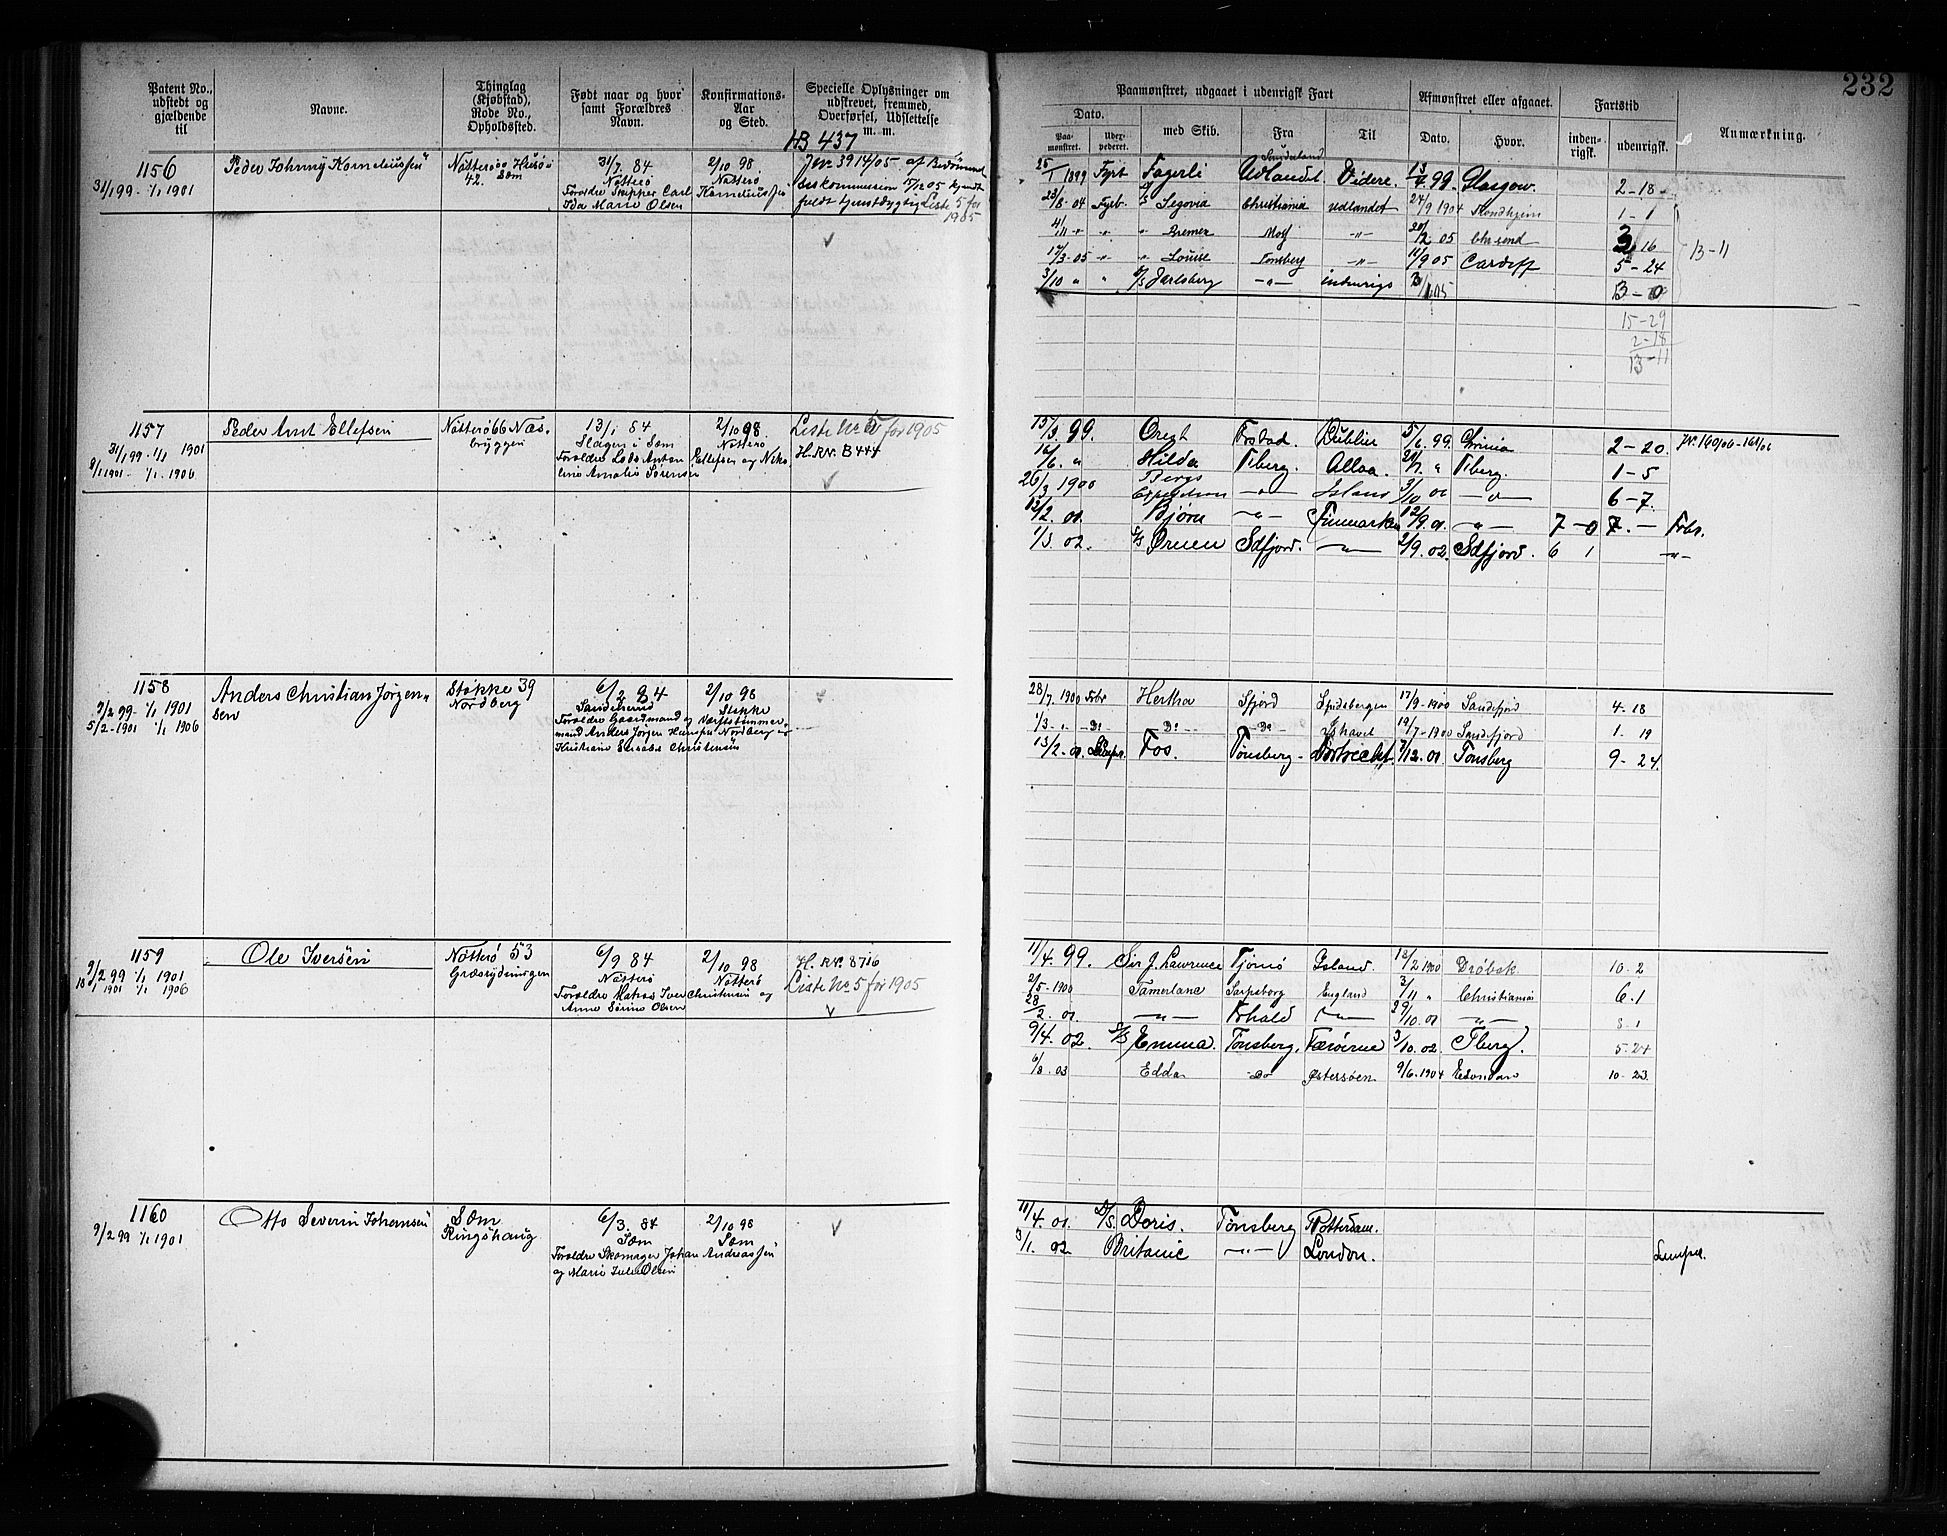 232
Patent No., udstedt og gjældende til
Navne.
Thinglag (Kjøbstad), Rode No., Opholdssted.
Født naar og hvor samt Forældres Navn.
Konfirmations-Aar og Sted.
Specielle Oplysninger om udskrevet, fremmed, Overførsel, Udslettelse m. m.
Paamønstret, udgaaet i udenrigsk Fart
Dato.
Paamønstret.
Udexpederet.
med Skib.
Fra
Til
Afmønstret eller afgaaet.
Dato.
Hvor.
Fartstid
indenrigsk.
udenrigsk.
Anmærkning.
HB 437
1156
31/1 99 - 1/1 1901
Peder Johnny Korneliussen
Nøtterö Husö
42. Sæm
31/7 84
Nøtterö
Foreldre Skipper Carl Korneliussen
Ida Marie Olsen
2/10 98
Nøtterö
Jnr. 3914/05 af Bedömmel
seskommission 15/12 05 kjendt
fuldt tjenstdygtig Liste 5 for
1905
25/1 1899 Fyrb Fagerli Sunderland Udlandet Videre. 13/4 99. Glasgow. 2-18
23/8-04 Fyrb. Segovia Christiania Udlandet 24/9 1904 Trondhjem 1-1
4/11 " " " Bremer Moss -"- 20/2 05 Chr.sund 3 16
17/3-05 -"- " Louise Tønsberg -"- 11/9 05 Cardiff 5-24
3/10 " " D/S Jarlsberg -"- indenrigs 3-0
13-11
15-29
2-18
13-11
1157
31/1 99 - 1/1 1901
8/1 1901 - 1/1 1906
Peder Arnt Ellefsen
Nøtterö 66 Næs-
bryggen
13/1 84
Slagen i Sæm
Foreldre Lods Anton Ellefsen og Niko
line Amalie Sørensen
2/10 98
Nøtterö
Liste No 5 for 1905
H.RN. B 444
15/3 99. Orest Frstad. Dublin 5/6 99. 2-20. JN. 160/06-161/06
16/6. " Hilda Tberg. Alloa. 21/7 " Tberg. 1-5
26/3 1900 Bergs Expedition -"- Island 3/10 00 -"- 6-7.
12/2. 01. Bjørn -"- Finmarken 12/9. 01. -"- 7-0 7.-
1/3. 02. S/S Ørnen Sdfjord. -"- 2/9. 02. Sdfjord. 6 1 -"-
1158
9/2 99 - 1/1 1901
5/2-1901 1/1 1906
Anders Christian Jørgen-
sen
Stokke 39
Nordberg
6/2 84
Sandeherred
Foreldre Gaardmand og Værftstømmer-
mand Anders Jørgen Hansen Nordberg og
Kristiane Elisabet Christensen
2/10 98
Stokke
28/7. 1900 Fobr Hertha Sfjord Spidsbergen 17/9-1900 Sandefjord 4-18
1/3 - " - Do Do - Do Ishavet 19/7-1900 Sandefjord 1. 19
13/2. 01. Fos. Tønsberg - Dortrecht. 7/12. 01. Tønsberg 9-24.
1159
9/2 99 1/1 1901
18/1 1901 1/1 1906
Ole Iversen
Nøtterö 53
Græsrydningen
6/9 84
Nøtterö
Foreldre Matros Iver Christensen og
Anne Sørine Olsen
2/10 98
Nøtterö
H. RN. 8716
Liste No 5 for 1905
11/4. 99. Sir J. Lawrence Tjømø Island. 12/2 1900 Drøbak 10-2
2/5-1900 Tamerlane Sarpsborg England 3/11 " Christiania 6-1
28/2. 01. -"- Frhald -"- 29/10. 01 -"- 8-1
9/4. 02. S/S Emma. Tønsberg, Færöerne 3/10. 02. Tberg. 5-24
6/8. 03 Edda -Do Østersøen 9/6. 1904 10-23
1160
9/2 99 1/1 1901
Otto Severin Johansen
Sæm
Ringshaug
6/3. 84
Sæm
Foreldre Skomager Johan Andreassen
og Marie Julie Olsen
2/10 98
Sæm
11/4. 01. D/S Doris. Tønsberg Rotterdam.
3/1. 02 Britanic -"- London.